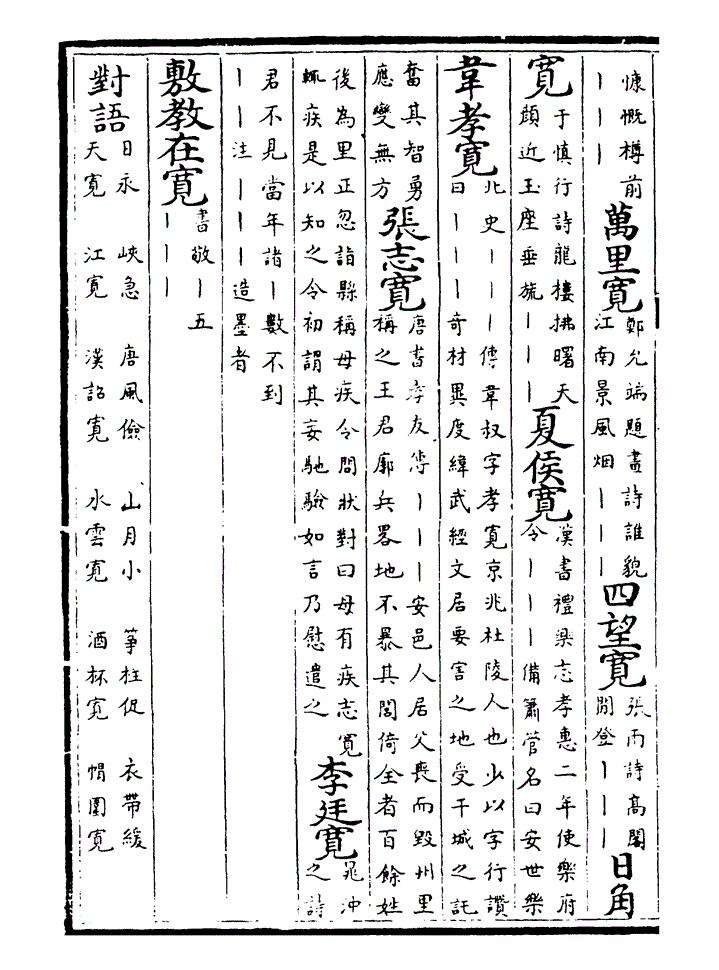 慷慨樽前｜｜｜萬里寛鄭允端題畫詩誰貌江南景風烟｜｜｜四望寛張雨詩高閣閒登｜｜｜日角
寛于慎行詩龍樓拂曙天顔近玉座垂旒｜｜｜夏侯寛漢書禮樂志孝惠二年使樂府令｜｜｜備簫管名曰安世樂
韋孝寛北史｜｜｜傳韋叔字孝寛京兆杜陵人也少以字行讚曰｜｜｜奇材異度緯武經文居要害之地受干城之託
奮其智勇應變無方張志寛唐書孝友傳｜｜｜安邑人居父喪而毁州里稱之王君廓兵畧地不暴其閭倚全者百餘姓
後為里正忽詣縣稱母疾令問狀對曰母有疾志寛輒疾是以知之令初謂其妄馳驗如言乃慰遣之李廷寛晁沖之詩
君不見當年諸｜數不到｜｜注｜｜｜造墨者
敷教在寛書敬｜五｜｜｜
對語日永天寛 峽急江寛 唐風儉漢詔寛 山月小水雲寛 箏柱促酒杯寛 衣帶緩帽圍寛